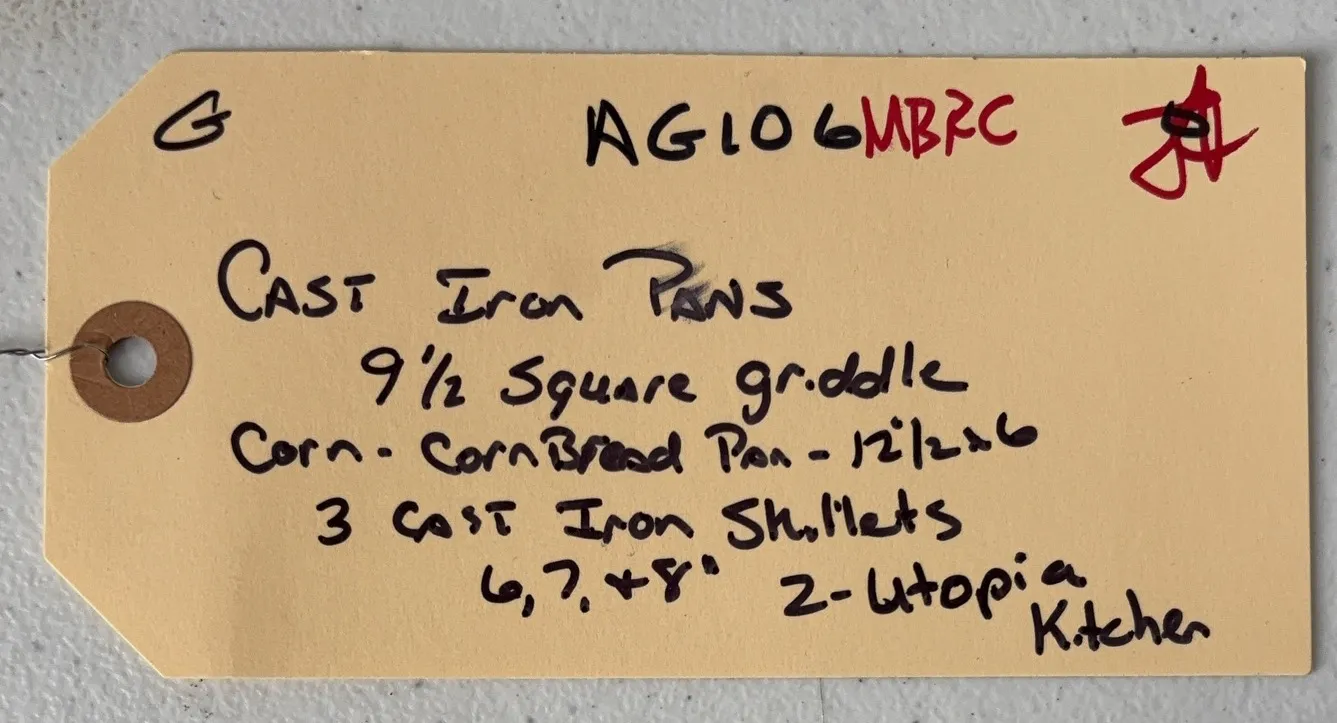 G AG106MBRC
CAST Iron PANS
9 1/2 Square griddle
Corn - CornBread Pan - 12 1/2 x 6
3 CAST Iron Skillets
6, 7, + 8" 2 - Utopia
Kitchen